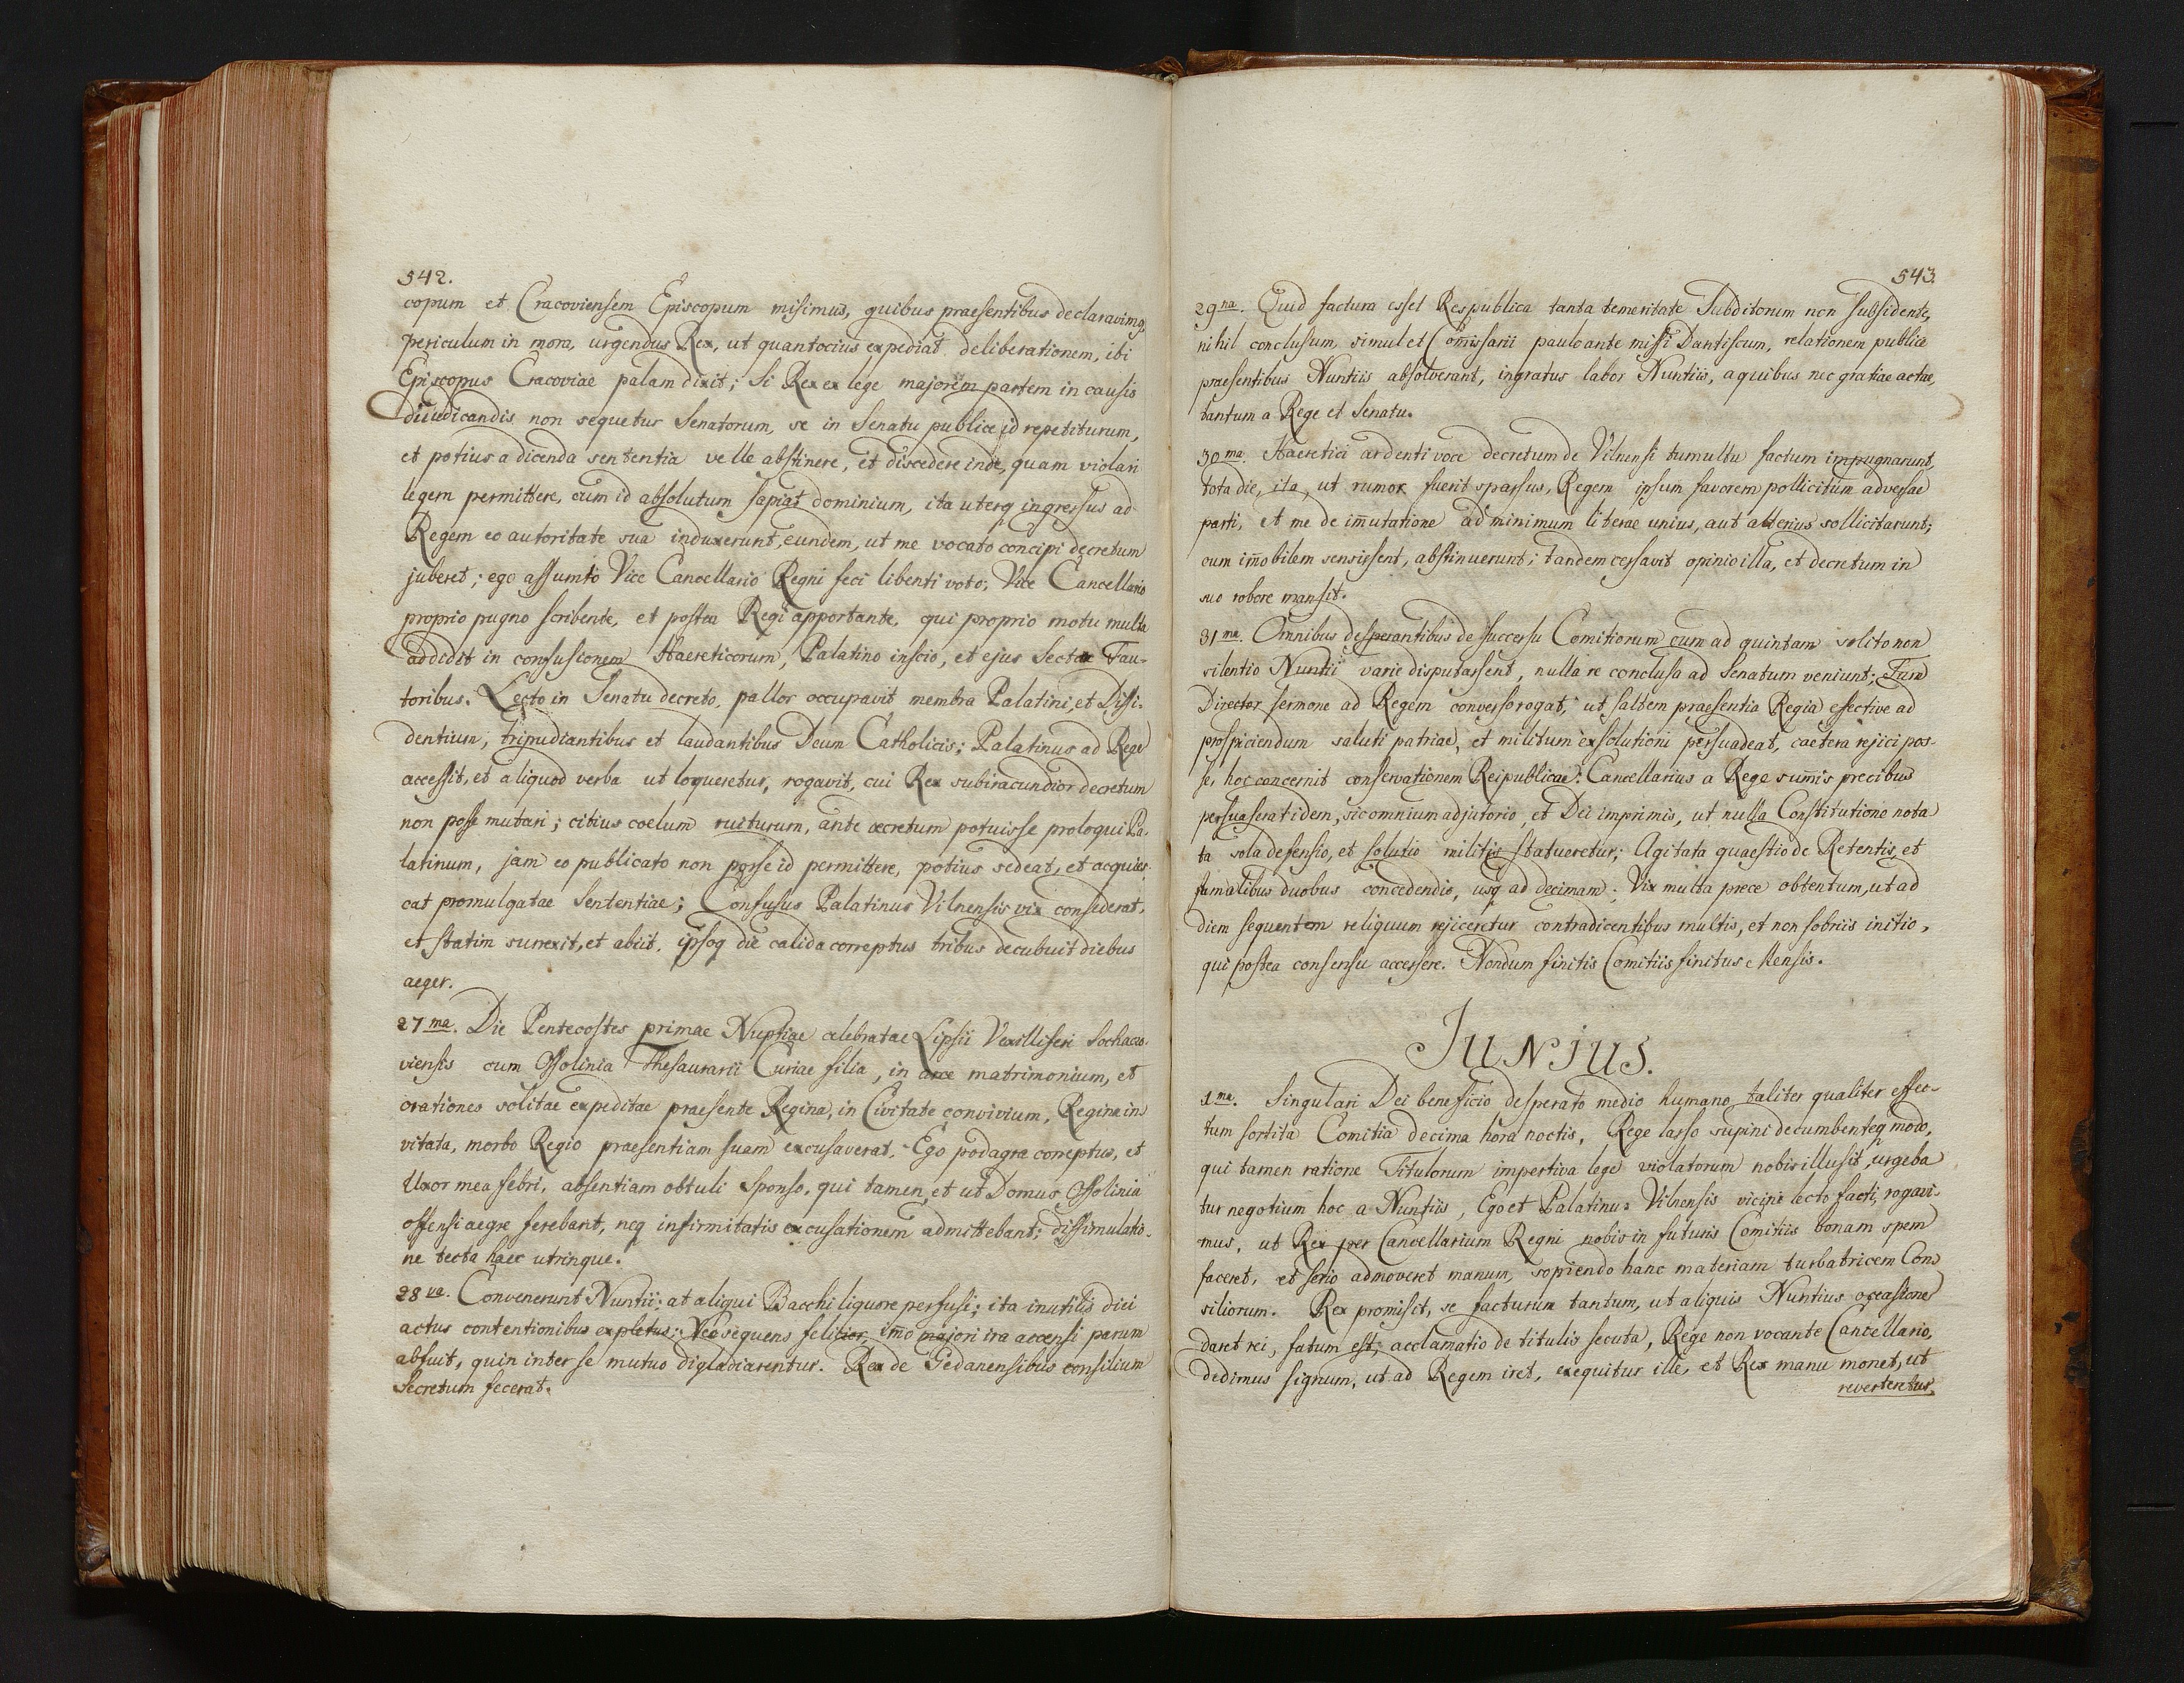 542.
copum et Cracoviensem Episcopum misimus, quibus praesentibus declaravimq
periculum in mora, urgendus Rex, ut quantocius expediat deliberationem, ibi
Episcopus Cracoviae palam dixit; Si Rex ex lege majorem partem in causis
diiudicandis non sequetur Senatorum, se in Senatu publice id repetiturum,
et potius a dicenda sententia velle abstinere, et discedere inde, quam violari
legem permittere, cum id absolutum sapiat dominium, ita uterq ingressus ad
Regem eo autoritate sua induxerunt, eundem, ut me vocato concipi decretum
juberet; ego assumto Vice Cancellario Regni feci libenti voto; Vice Cancellario
proprio pugno scribente, et postea Regi apportante, qui proprio motu multa
addidit in confusionem Haereticorum, Palatino inscio, et ejus Sectae Fau-
toribus. Lecto in Senatu decreto, pallor occupavit membra Palatini, et Dissi-
dentium, tripudiantibus et laudantibus Deum Catholicis; Palatinus ad Rege
accessit, et aliquod verba ut loqueretur, rogavit, cui Rex subiracundior decretum
non posse mutari; citius coelum ruiturum, ante decretum potuisse proloqui Pa-
latinum, jam eo publicato non posse id permittere, potius sedeat, et acquies-
cat promulgatae Sententiae; Confusus Palatinus Vilnensis vix considerat,
et statim surrexit, et abiit, ipsoq die calida correptus tribus decubuit diebus
aeger.
27ma. Die Pentecostes primae Nuptiae celebratae Lipsii Vexilliferi Sochaczo-
viensis cum Ossolinia Thesaurarii Curiae filia, in arce matrimonium, et
orationes solitae expeditae praesente Regina, in Civitate convivium, Regina in
vitata, morbo Regio praesentiam suam excusaverat. Ego podagra correptus, et
Uxor mea febri, absentiam obtuli Sponso, qui tamen, et ut Domus Ossolinia
offensi aegre ferebant, neq infirmitatis excusationem admittebant; dissimulatio-
ne tecta haec utrinque.
28va. Convenerunt Nuntii; at aliqui Bacchi liquore perfusi; ita inutilis diei
actus contentionibus expletus; Nec sequens felicior, imo majori ira accensi parum
abfuit, quin inter se mutuo digladiarentur. Rex de Gedanensibus consilium
Secretum fecerat.
543.
29na. Quid factura esset Respublica tanta temeritate Subditorum non subsidente,
nihil conclusum, simul et Comissarii paulo ante missi Dantiscum, relationem publice
praesentibus Nuntiis absolverant, ingratus labor Nuntiis, a quibus nec gratiae actae,
tantum a Rege et Senatu.
30ma. Haeretici ardenti voce decretum de Vilnensi tumultu factum impugnarunt,
tota die, ita, ut rumor fuerit sparsus, Regem ipsum favorem pollicitum adversae
parti, et me de imutatione ad minimum literae unius, aut alterius sollicitarunt;
cum imobilem sensissent, abstinuerunt; tandem cessavit opinio illa, et decretum in
suo robore mansit.
31ma. Omnibus desperantibus de successu Comitiorum cum ad quintam solito non
silentio Nuntii varie disputassent, nulla re conclusa ad Senatum veniunt; Tum
Director sermone ad Regem converso rogat, ut saltem praesentia Regia efective ad
prospiciendum saluti patriae, et militum exsolutioni persuadeat, caetera rejici pos-
se, hoc concernit conservationem Reipublicae: Cancellarius a Rege sumis precibus
persuaserat idem, sic omnium adjutorio, et Dei imprimis, ut nulla Constitutione nota
ta sola defensio, et solutio militis statueretur; Agitata quaestio de Retentis, et
fumalibus duobus concedendis, usq ad decimam; Vix multa prece obtentum, ut ad
diem sequentem reliquum rejiceretur contradicentibus multis, et non sobriis initio,
qui postea consensu accessere. Nondum finitis Comitiis finitus Mensis.
JUNIUS.
1ma. Singulari Dei beneficio, desperato medio humano, taliter qualiter effec-
tum sortita Comitia decima hora noctis, Rege lasso supini decumbenteq modo,
qui tamen ratione Titulorum impertiva lege violatorum nobis illusit, urgeba
tur negotium hoc a Nuntiis, Ego et Palatinus Vilnensis vicini lecto facti, rogavi-
mus, ut Rex per Cancellarium Regni nobis in futuris Comitiis bonam spem
faceret, et serio admoveret manum, sopiendo hanc materiam turbatricem Con
siliorum. Rex promisit, se facturum tantum, ut aliquis Nuntius occasione
daret rei, fatum est; acclamatio de titulis secuta, Rege non vocante Cancellario,
dedimus signum, ut ad Regem iret, exequitur ille, et Rex manu monet, ut
reverteretur,